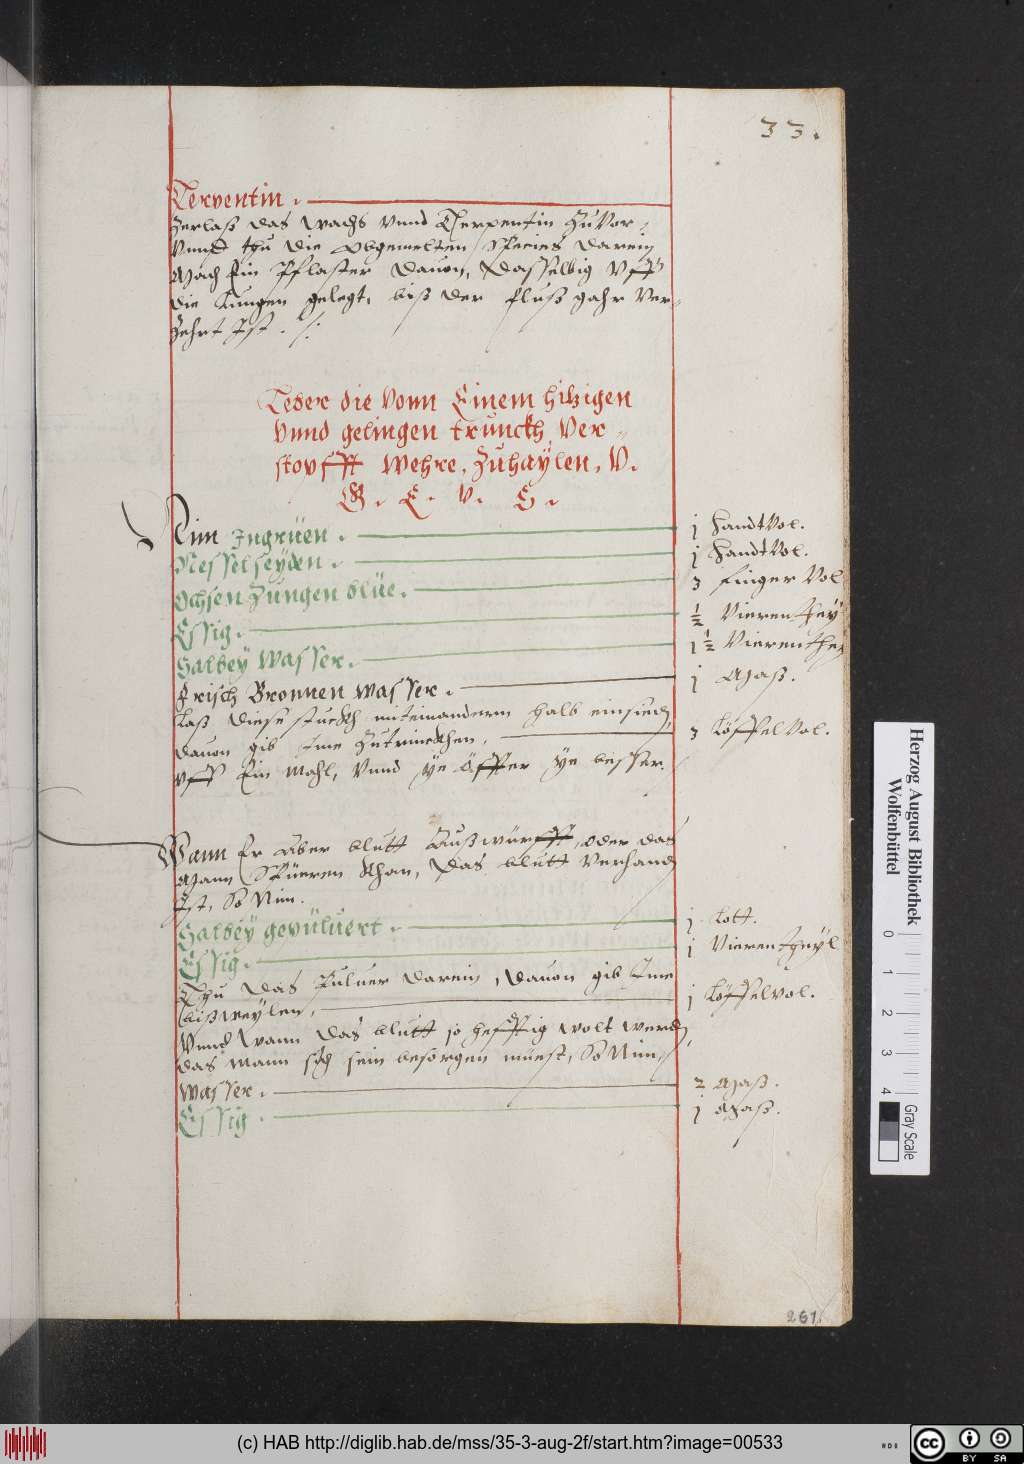 33.
Terpentin.
Zerlaß das wachs vnnd Therpentin zuuor,
Vnnd thu die obgemelten Species darein,
Mach Ein Pflaster dauon, Dasselbig vff
die Lungen gelegt, biß der fluß gahr ver-
zehrt Ist ./.
Leber die Vonn Einem hitzigen
Vnnd gelingen trunckh Ver-
stopfft Wehre, Zuhaylen, V.
G. E. V. S.
Nim Ingrüen. j Handtvol.
Nesselseyden. j Handtvol.
Ochsen Zungen blüe. 3 finger Vol
Essig. ½ Vierentheyl
Salbey Wasser. 1½ Vierentheyl
Frisch Bronnen wasser. j Maß.
Laß diese stuckh miteinanderm halb einsiedn,
dauon gib Ime Zutrinckhen, 3 Löffelvol.
vff Ein mahl, Vnnd ye öffter ye besser.
Wann Er aber blutt Außwürfft, oder das
Mann Spüeren khan, das blutt verhandn
Ist, So Nim.
Salbey gepüluert. j Lott.
Essig. j Vierentheyl
Thu das Puluer darein, dauon gib Ime
bißweylen, j Löffelvol.
Vnnd Wann das blutt so hefftig wolt werdn,
das Mann sich sein besorgen muest, So Nim,
Wasser. 2 Maß.
Essig. j Maß.
261
Herzog August Bibliothek
Wolfenbüttel
0 1 2 3 4
Gray Scale
(c) HAB http://diglib.hab.de/mss/35-3-aug-2f/start.htm?image=00533
cc BY SA